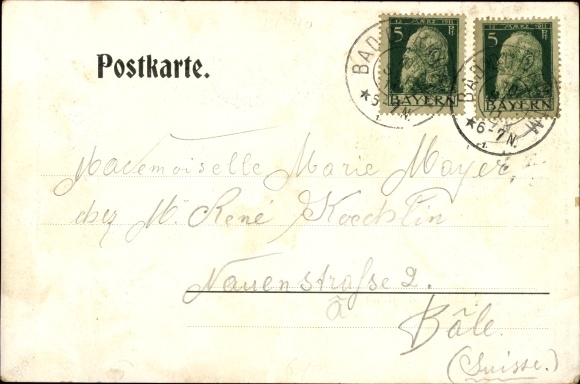 Postkarte.
5 12 JAHRE 1911 5 Pf
BAYERN BAYERN
BAD
BAD
*5-7N.
*6-7N.
Mademoiselle Marie Mayer,
chez Mr. René Koechlin
Nauenstraße 2.
à
Bâle.
(Suisse.)